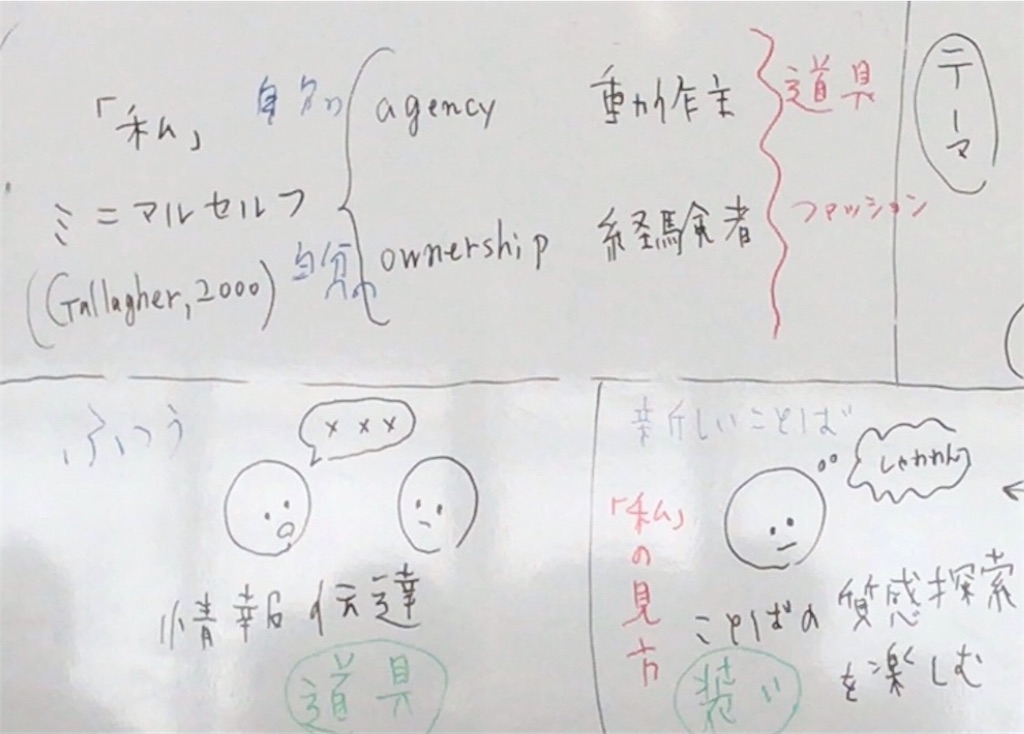 「私」
ミニマルセルフ
(Gallagher, 2000)
自分が
agency
動作主
自分の
ownership
経験者
道具
ファッション
テーマ
ふつう
×××
情報伝達
道具
新しいことば
しゃわわん
「私」の見方
ことばの質感探索
を楽しむ
装い